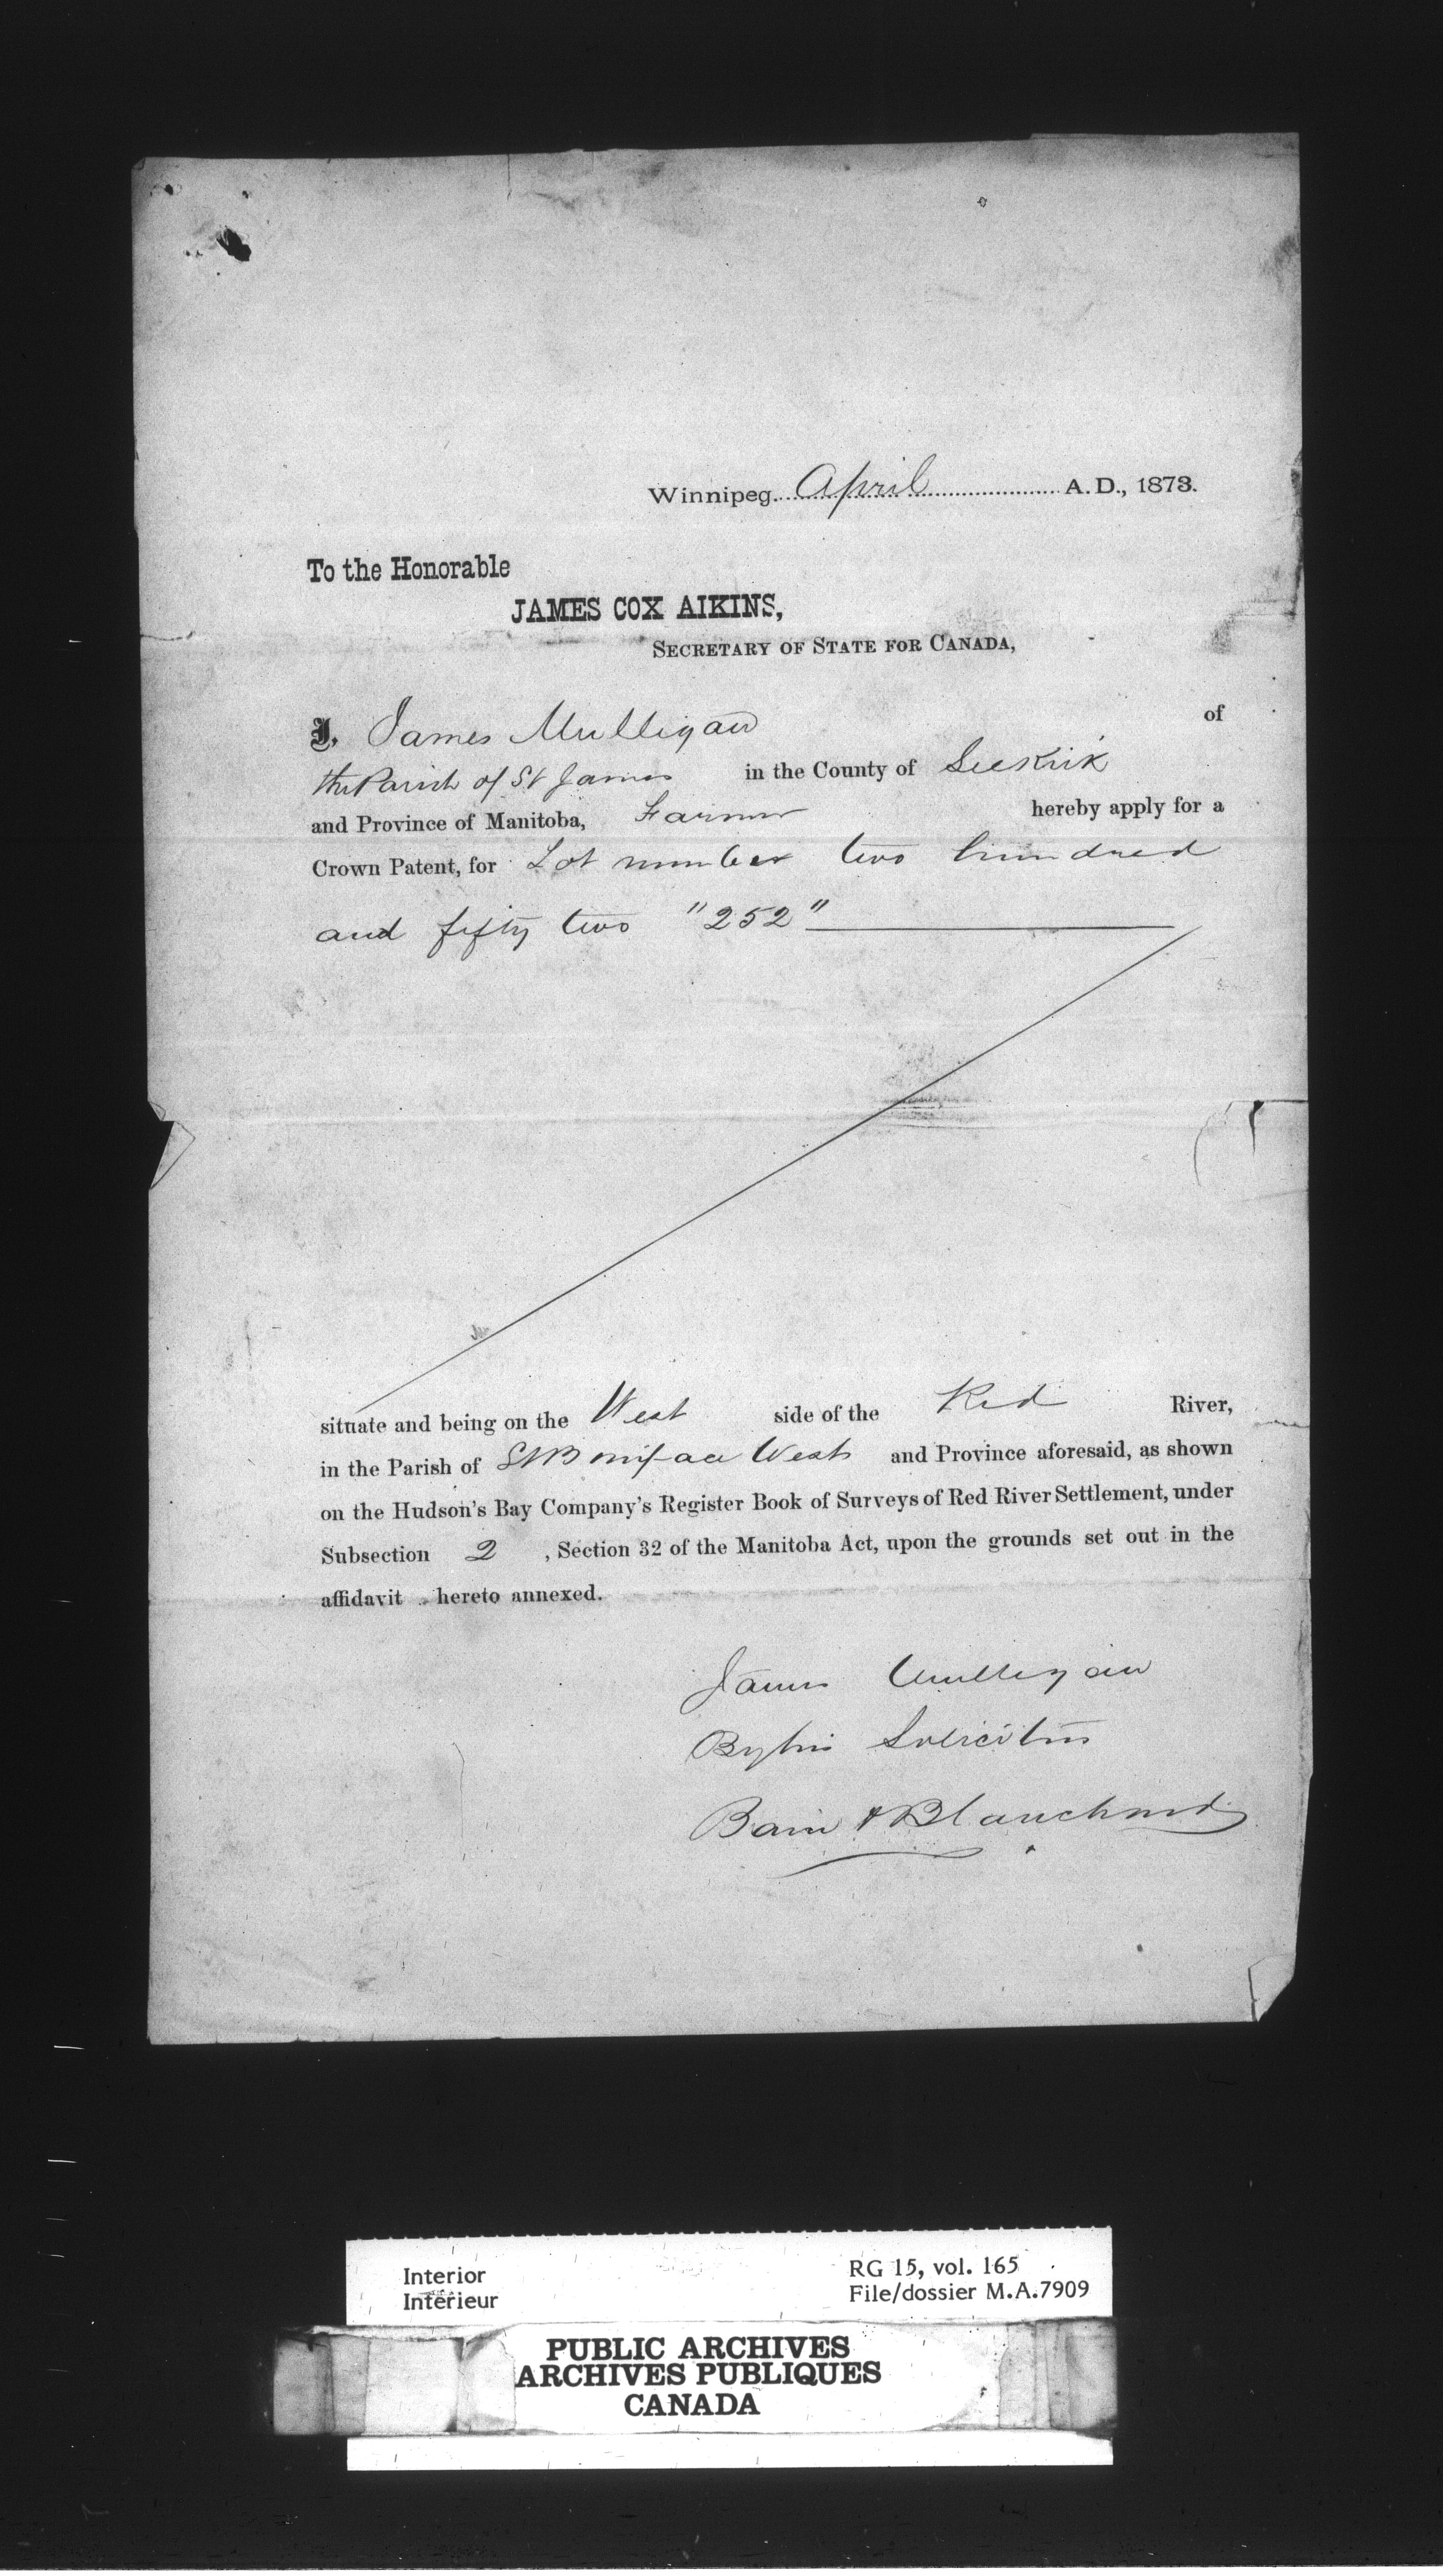 Winnipeg. April A.D., 1873.
To the Honorable
JAMES COX AIKINS,
SECRETARY OF STATE FOR CANADA,
I, James Mulligan of
the Parish of St James in the County of Selkirk
and Province of Manitoba, Farmer hereby apply for a
Crown Patent, for Lot number two hundred
and fifty two "252"
situate and being on the West side of the Red River,
in the Parish of St Boniface West and Province aforesaid, as shown
on the Hudson's Bay Company's Register Book of Surveys of Red River Settlement, under
Subsection 2, Section 32 of the Manitoba Act, upon the grounds set out in the
affidavit hereto annexed.
James Mulligan
By his Solicitors
Bain & Blanchard
Interior
Intérieur
RG 15, vol. 165
File/dossier M.A.7909
PUBLIC ARCHIVES
ARCHIVES PUBLIQUES
CANADA